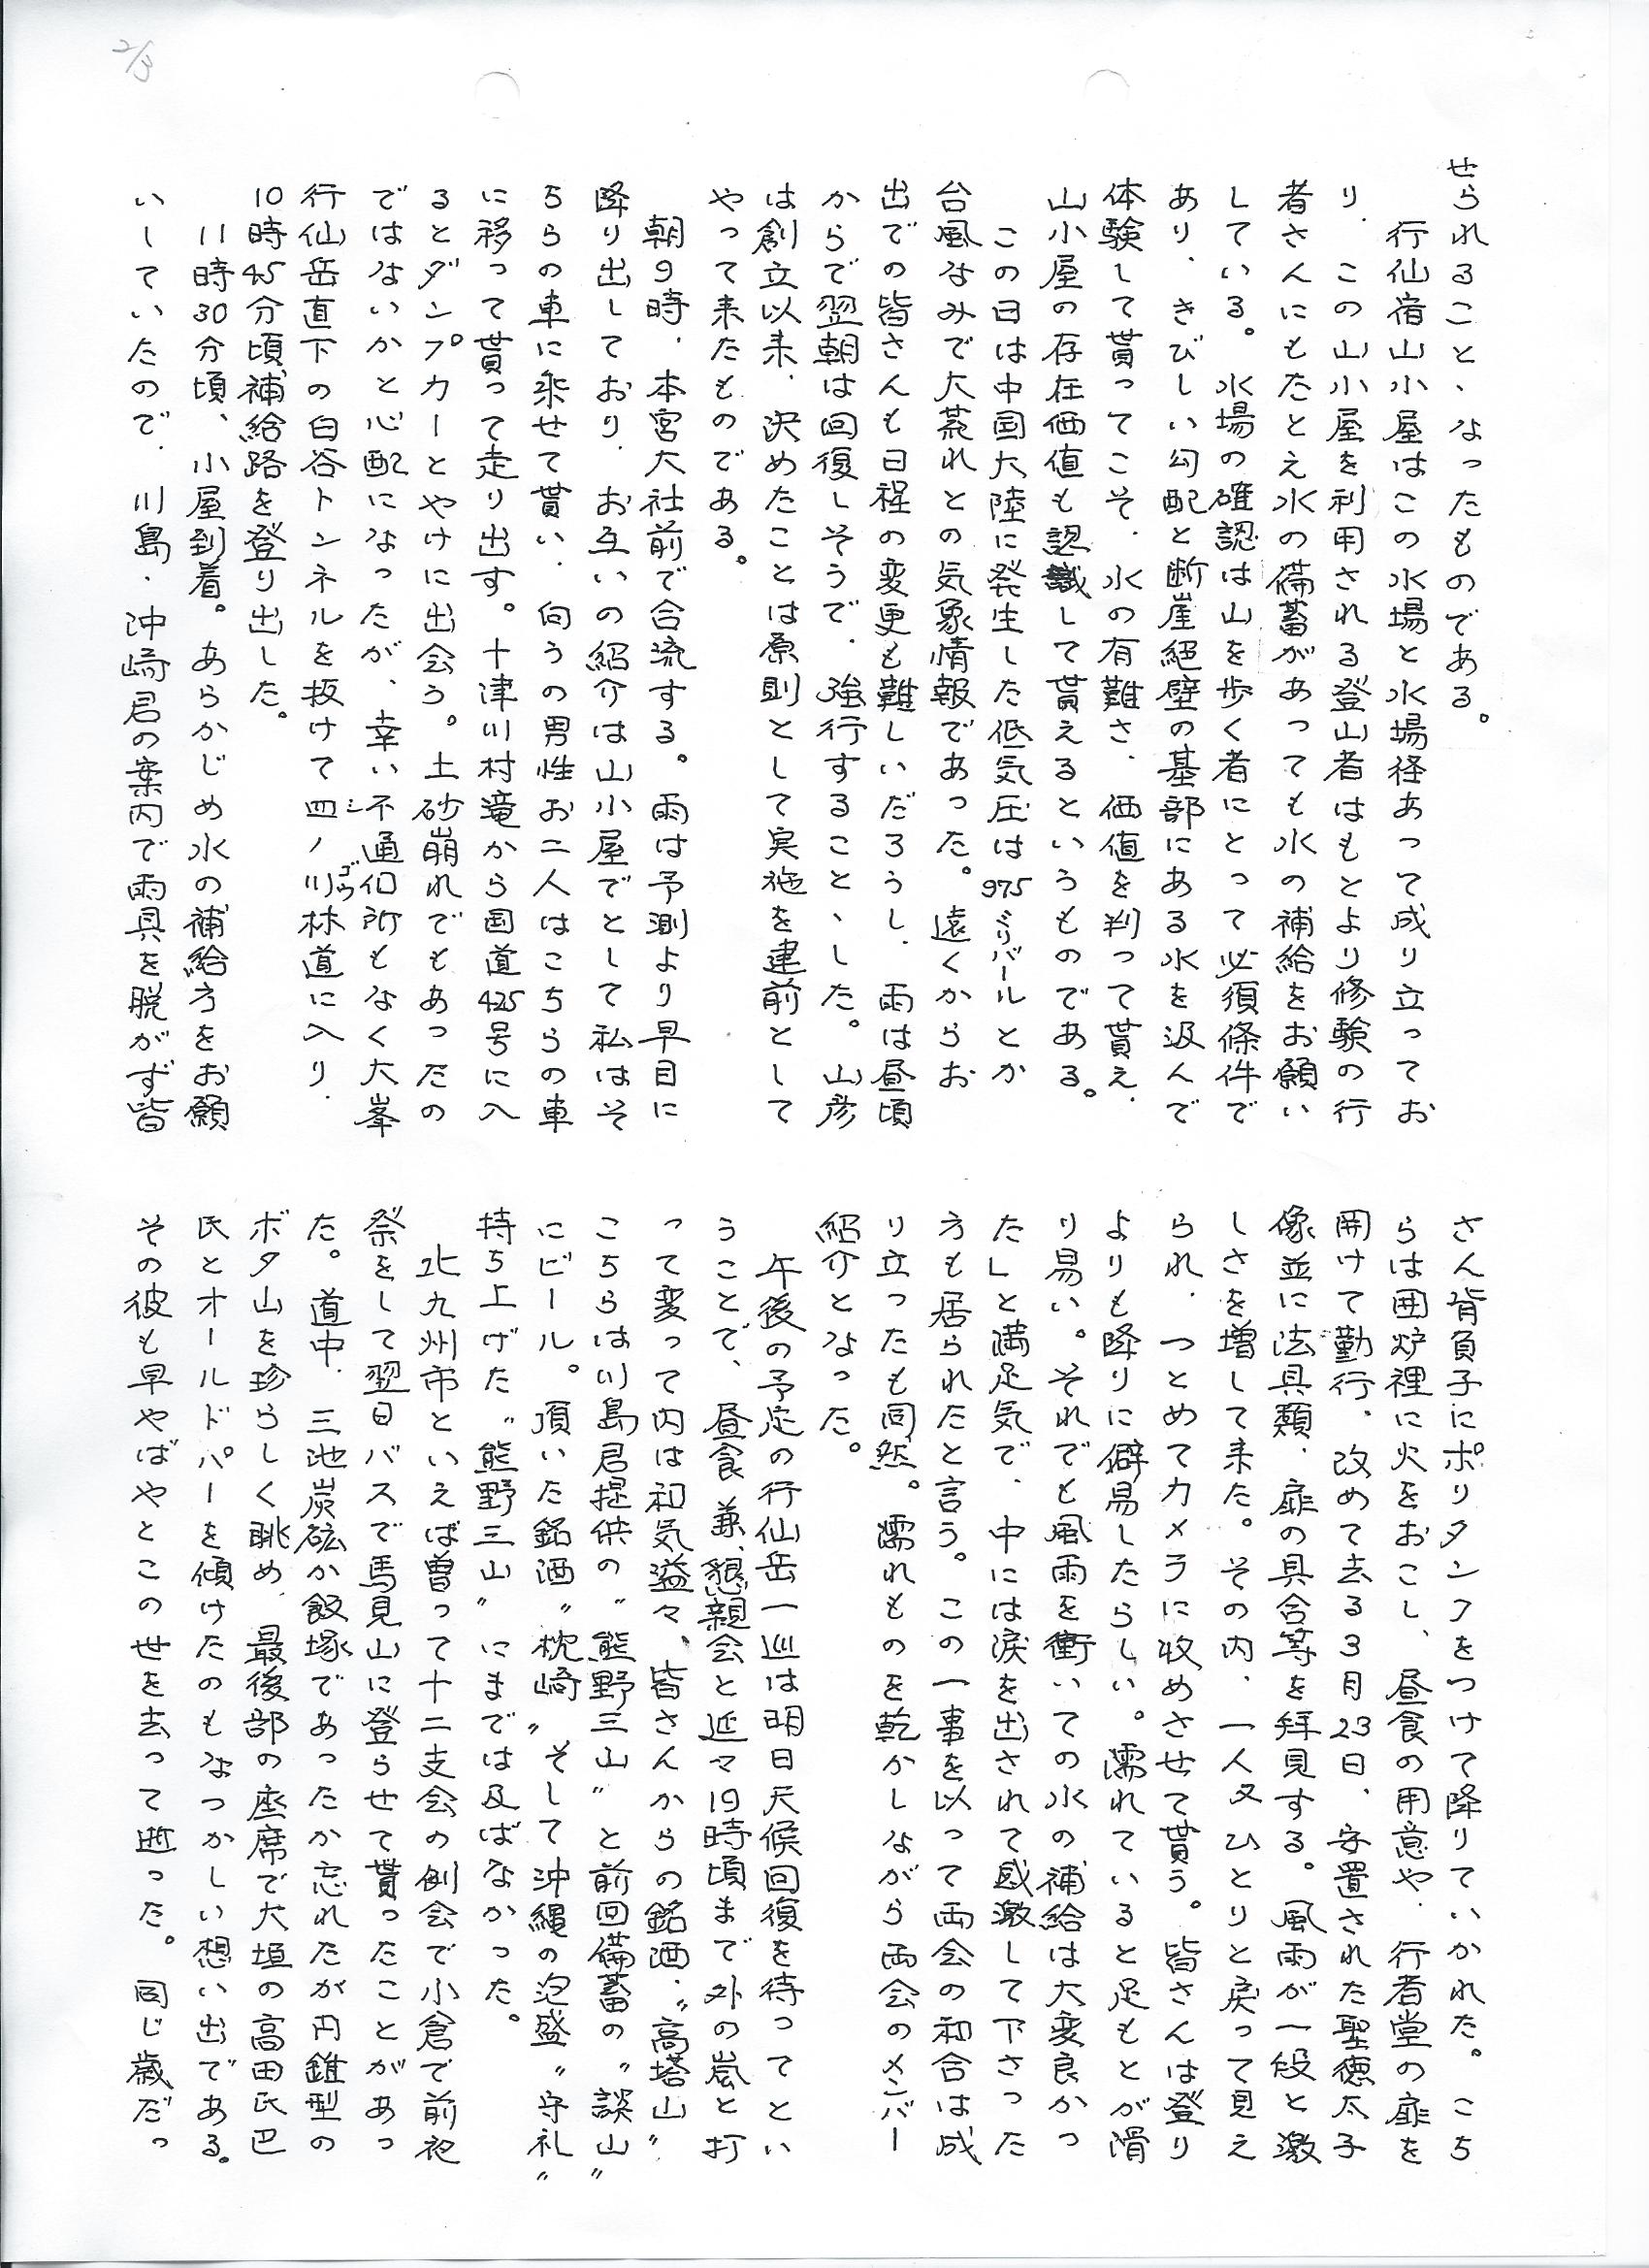 2/3
せられること、なったものである。
行仙宿山小屋はこの水場と水場径あって成り立ってお
り、この山小屋を利用される登山者はもとより修験の行
者さんにもたとえ水の備蓄があっても水の補給をお願い
している。水場の確認は山を歩く者にとって必須條件で
あり、きびしい勾配と断崖絕壁の基部にある水を汲んで
体験して貰ってこそ、水の有難さ、価値を判って貰え、
山小屋の存在価値も認識して貰えるというものである。
この日は中国大陸に発生した低気圧は975ミリバールとか
台風なみで大荒れとの気象情報であった。遠くからお
出での皆さんも日程の変更も難しいだろうし、雨は昼頃
からで翌朝は回復しそうで、強行すること、した。山彦
は創立以来、決めたことは原則として実施を建前として
やって来たものである。
朝9時、本宮大社前で合流する。雨は予測より早目に
降り出しており、お互いの紹介は山小屋でとして私はそ
ちらの車に乗せて貰い、向うの男性お二人はこちらの車
に移って貰って走り出す。十津川村滝から国道425号に入
るとダンプカーとやけに出会う。土砂崩れでもあったの
ではないかと心配になったが、幸い不通個所もなく大峯
行仙岳直下の白谷トンネルを抜けて四ノ川林道に入り、
シ ゴウ
10時45分頃補給路を登り出した。
11時30分頃、小屋到着。あらかじめ水の補給方をお願
いしていたので、川島、沖崎君の案内で雨具を脱がず皆
さん背負子にポリタンクをつけて降りていかれた。こち
らは囲炉裡に火をおこし、昼食の用意や、行者堂の扉を
開けて勤行、改めて去る3月23日、安置された聖徳太子
像並に法具類、扉の具合等を拝見する。風雨が一段と激
しさを増して来た。その内、一人又ひとりと戻って見え
られ、つとめてカメラに収めさせて貰う。皆さんは登り
よりも降りに僻易したらしい。濡れていると足もとが滑
り易い。それでも風雨を衝いての水の補給は大変良かっ
た」と満足気で、中には涙を出されて感激して下さった
方も居られたと言う。この一事を以って両会の和合は成
り立ったも同然。濡れものを乾かしながら両会のメンバー
紹介となった。
午後の予定の行仙岳一巡は明日天候回復を待ってとい
うことで、昼食兼、懇親会と延々19時頃まで外の嵐と打
って変って内は和気溢々、皆さんからの銘酒、〝高塔山〟
こちらは川島君提供の〝熊野三山〟と前回備蓄の〝談山〟
にビール。頂いた銘酒〝枕崎〟そして沖縄の泡盛〝守礼〟
持ち上げた〝熊野三山〟にまでは及ばなかった。
北九州市といえば曽って十二支会の例会で小倉で前夜
祭をして翌日バスで馬見山に登らせて貰ったことがあっ
た。道中、三池炭砿か飯塚であったか忘れたが円錐型の
ボタ山を珍らしく眺め、最後部の座席で大垣の高田氏巴
氏とオールドパーを傾けたのもなつかしい想い出である。
その彼も早やばやとこの世を去って逝った。同じ歳だっ